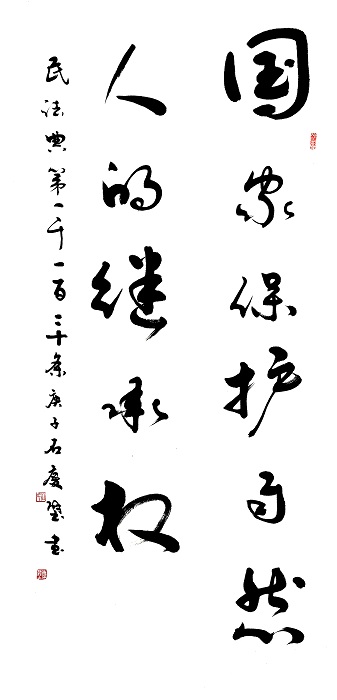 国家保护自然
人的继承权
民法典第一千一百二十条庚子石书